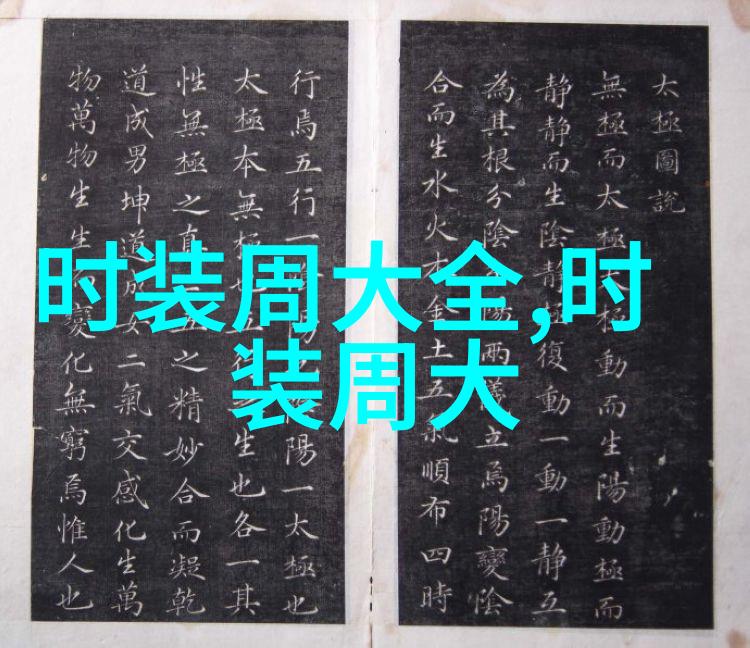 时装周大全,时
装周大
太極圖說
無極而太極太極動而生陽動極而
静静而生陰静極復動一動一静互
為其根分陰陽兩儀立焉陽變陰
合而生水火木金土五氣順布四時
行焉五行一陰陽陰陽一太極也
太極本無極也五行生也各一其
性無極之真二五之精妙合而凝乾
道成男坤道成女二氣交感化生萬
物萬物生生而變化無窮焉惟人也